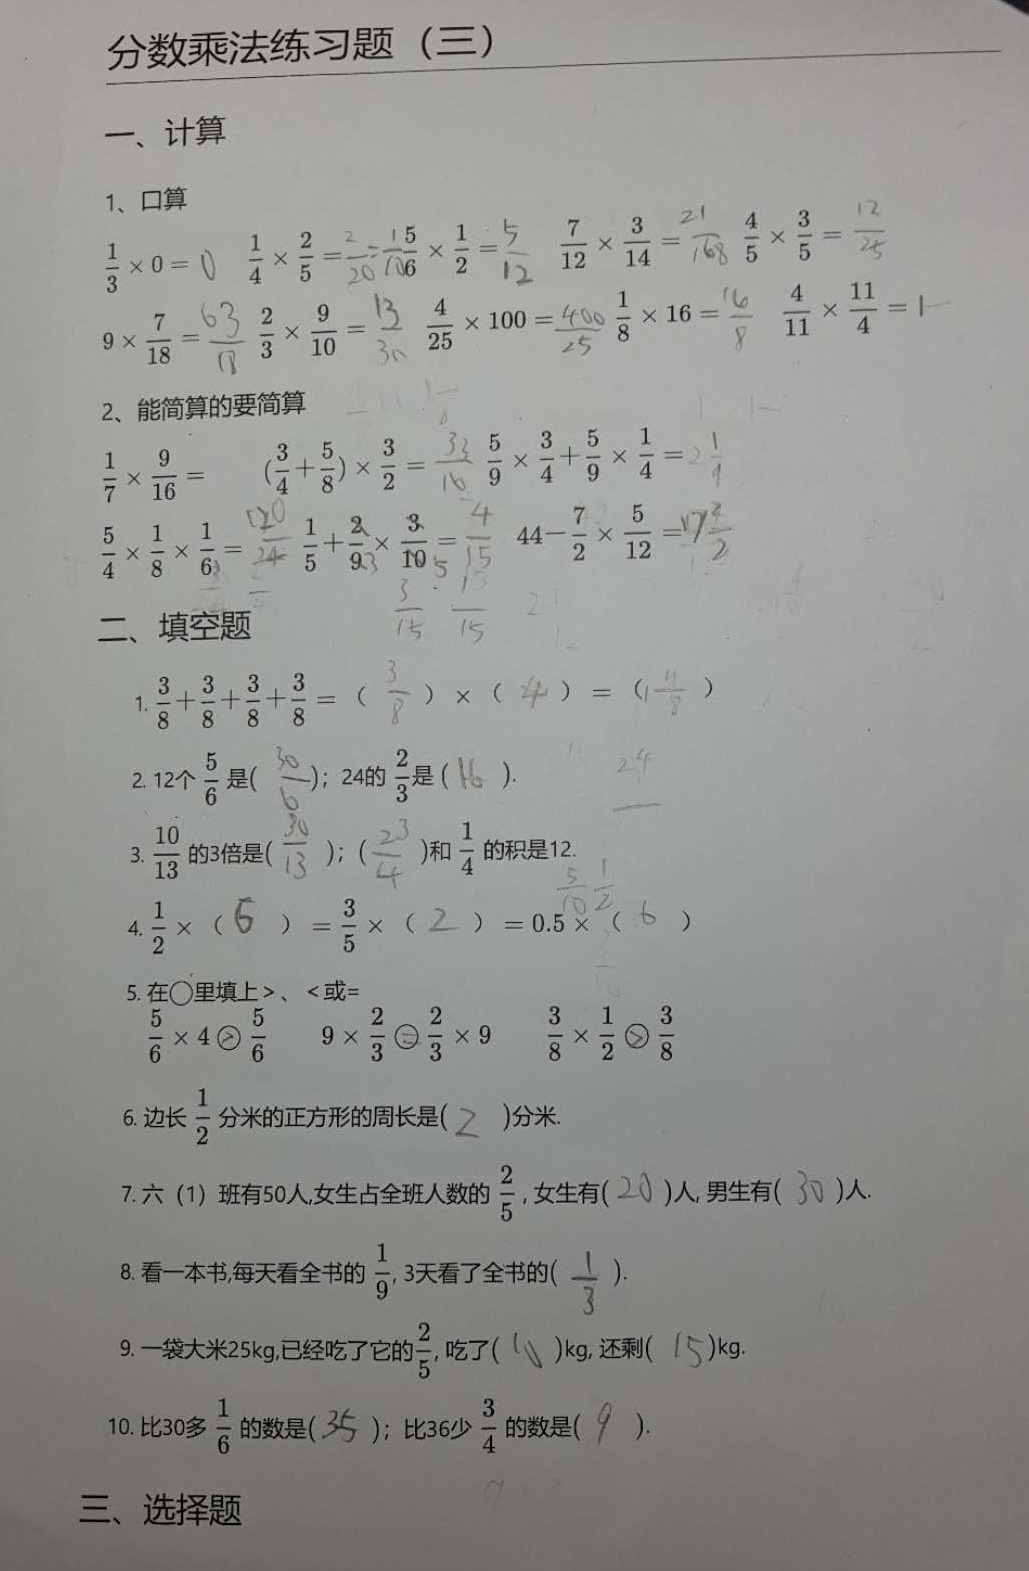 分数乘法练习题（三）
一、计算
1、口算
1/3 × 0 = 0 1/4 × 2/5 = 2/20 = 1/10 5/6 × 1/2 = 5/12 7/12 × 3/14 = 21/168 4/5 × 3/5 = 12/25
9 × 7/18 = 63/18 2/3 × 9/10 = 13/30 4/25 × 100 = 400/25 1/8 × 16 = 16/8 4/11 × 11/4 = 1
2、能简算的要简算
1/7 × 9/16 = (3/4 + 5/8) × 3/2 = 33/16 5/9 × 3/4 + 5/9 × 1/4 = 2 1/9
5/4 × 1/8 × 1/6 = 120/24 1/5 + 2/9 × 3/10 = 4/15 44 − 7/2 × 5/12 = 17 2/2
3/15 15/15
二、填空题
1. 3/8 + 3/8 + 3/8 + 3/8 = （ 3/8 ） × （ 4 ） = （ 1 4/8 ）
2. 12个 5/6 是( 30/6 )；24的 2/3 是 ( 16 ).
24
3. 10/13 的3倍是( 30/13 )；( 23/4 )和 1/4 的积是12.
5/10 1/2
4. 1/2 × （ 6 ） = 3/5 × （ 2 ） = 0.5 × （ 6 ）
5. 在○里填上＞、＜或=
5/6 × 4 > 5/6 9 × 2/3 = 2/3 × 9 3/8 × 1/2 > 3/8
6. 边长 1/2 分米的正方形的周长是( 2 )分米.
7. 六（1）班有50人,女生占全班人数的 2/5 , 女生有( 20 )人, 男生有( 30 )人.
8. 看一本书,每天看全书的 1/9, 3天看了全书的( 1/3 ).
9. 一袋大米25kg,已经吃了它的 2/5, 吃了( 10 )kg, 还剩( 15 )kg.
10. 比30多 1/6 的数是( 35 )；比36少 3/4 的数是( 9 ).
三、选择题